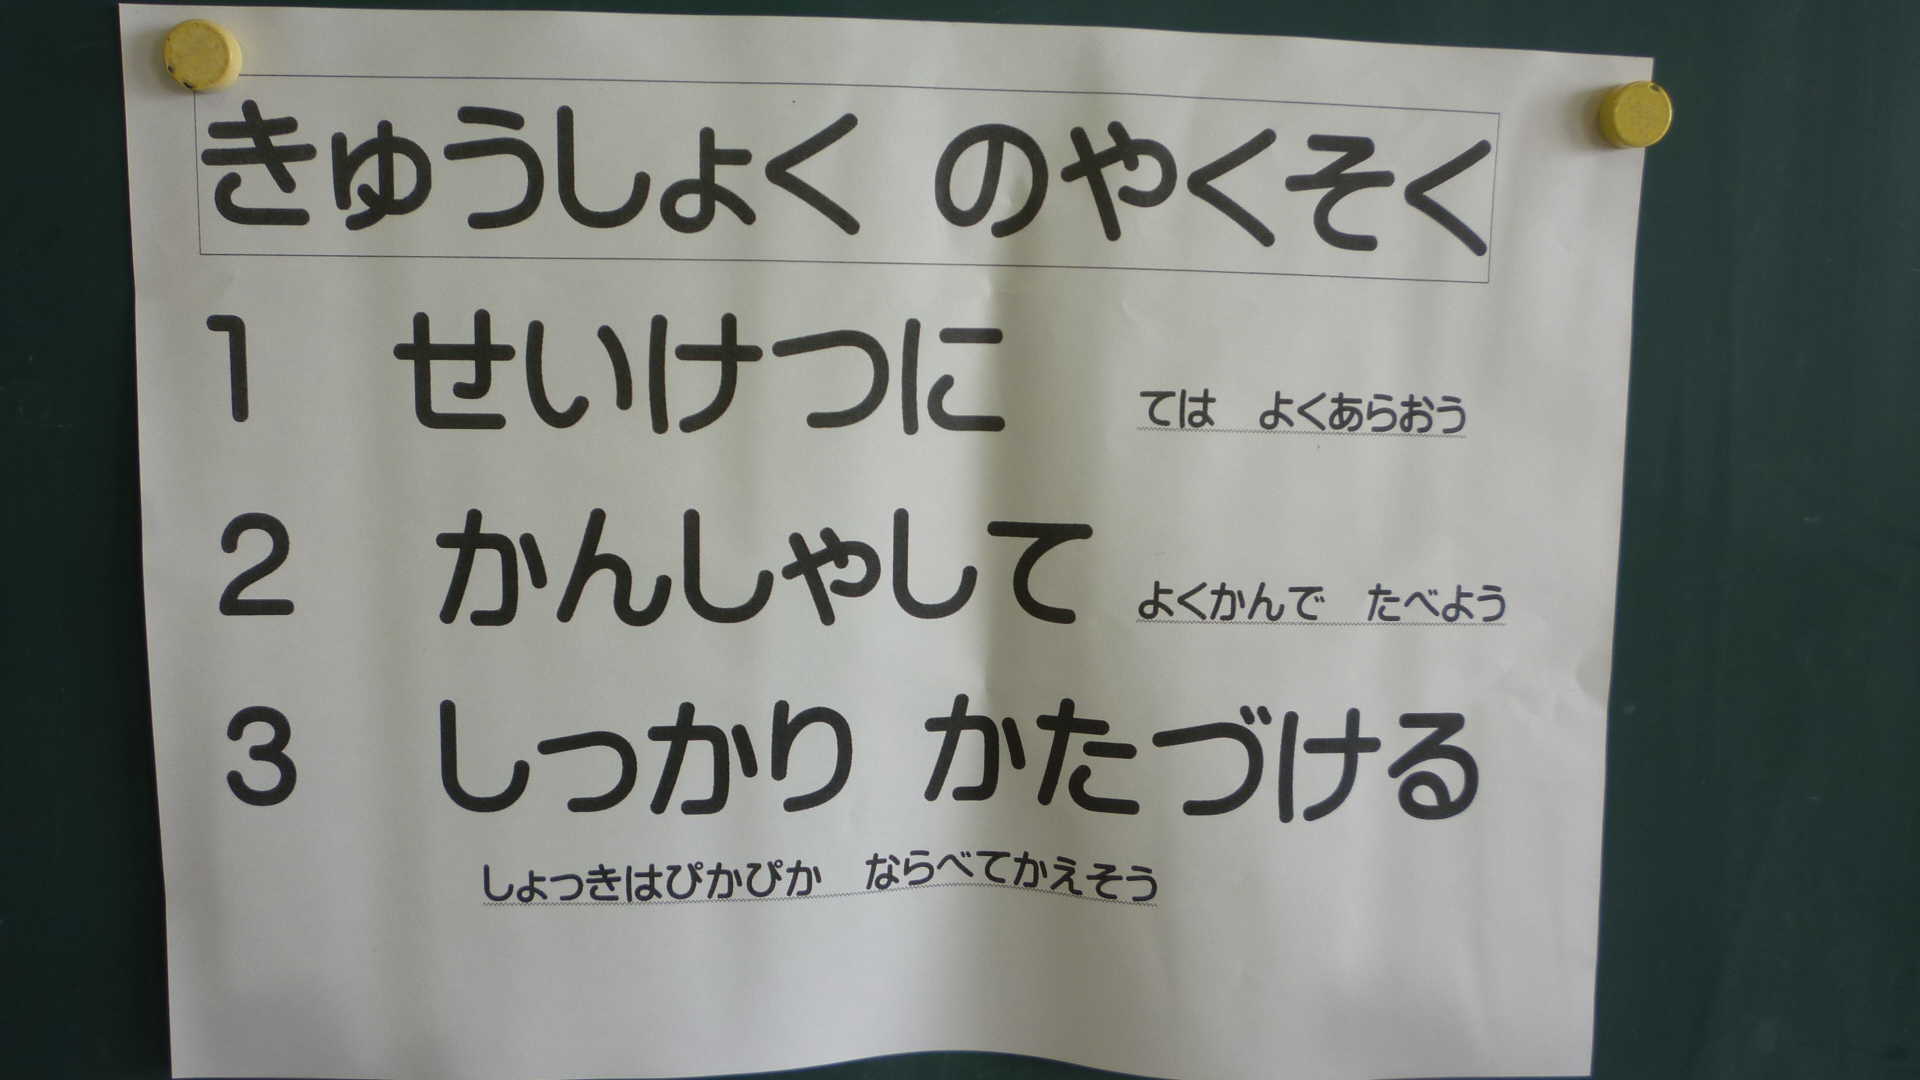 きゅうしょく のやくそく
1 せいけつに ては よくあらおう
2 かんしゃして よくかんで たべよう
3 しっかり かたづける
しょっきはぴかぴか ならべてかえそう